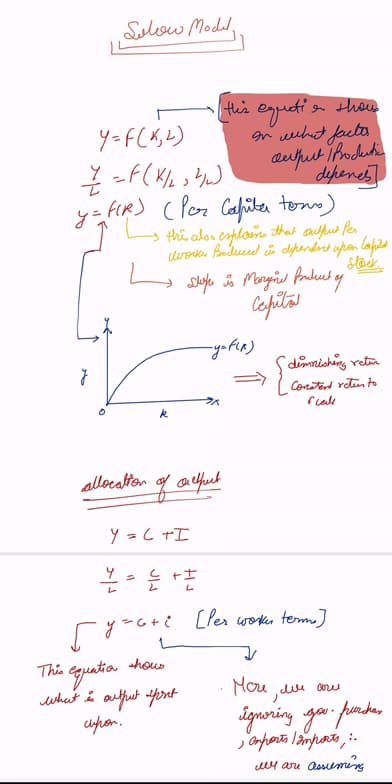 Solow Model
[this equation shows
on what factors
output/Production
depends]
Y = F(K, L)
Y/L = F(K/L, L/L)
y = f(k) (Per Capita terms)
this also explains that output Per
worker Produced is dependent upon Capital
Stock.
slope is Marginal Product of
Capital
y
y = f(k)
0
k
x
⇒ { diminishing return
Constant return to
scale
allocation of output
Y = C + I
Y/L = C/L + I/L
y = c + i [Per worker terms]
This equation shows
what is output spent
upon.
Here, we are
ignoring gov. purchase
, exports/imports, ∴
we are assuming